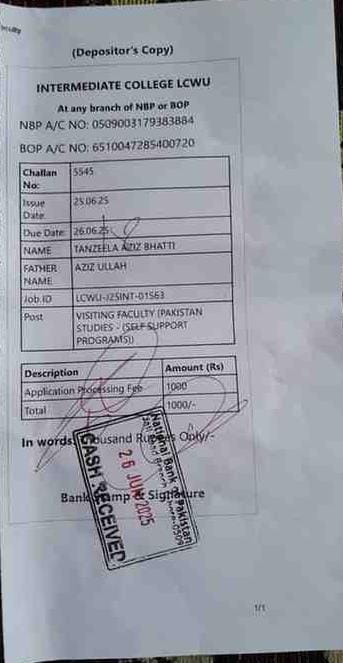 (Depositor's Copy)
INTERMEDIATE COLLEGE LCWU
At any branch of NBP or BOP
NBP A/C NO: 0509003179383884
BOP A/C NO: 6510047285400720
Challan No: 5545
Issue Date: 25.06.25
Due Date: 26.06.25
NAME TANZEELA AZIZ BHATTI
FATHER NAME AZIZ ULLAH
Job.ID LCWU-J25INT-01563
Post VISITING FACULTY (PAKISTAN
STUDIES - (SELF SUPPORT
PROGRAMS))
Description Amount (Rs)
Application Processing Fee 1000
Total 1000/-
In words: ousand Rupees Only/-
Bank Stamp & Signature
National Bank of Pakistan
26 JUN 2025
CASH RECEIVED
1/1